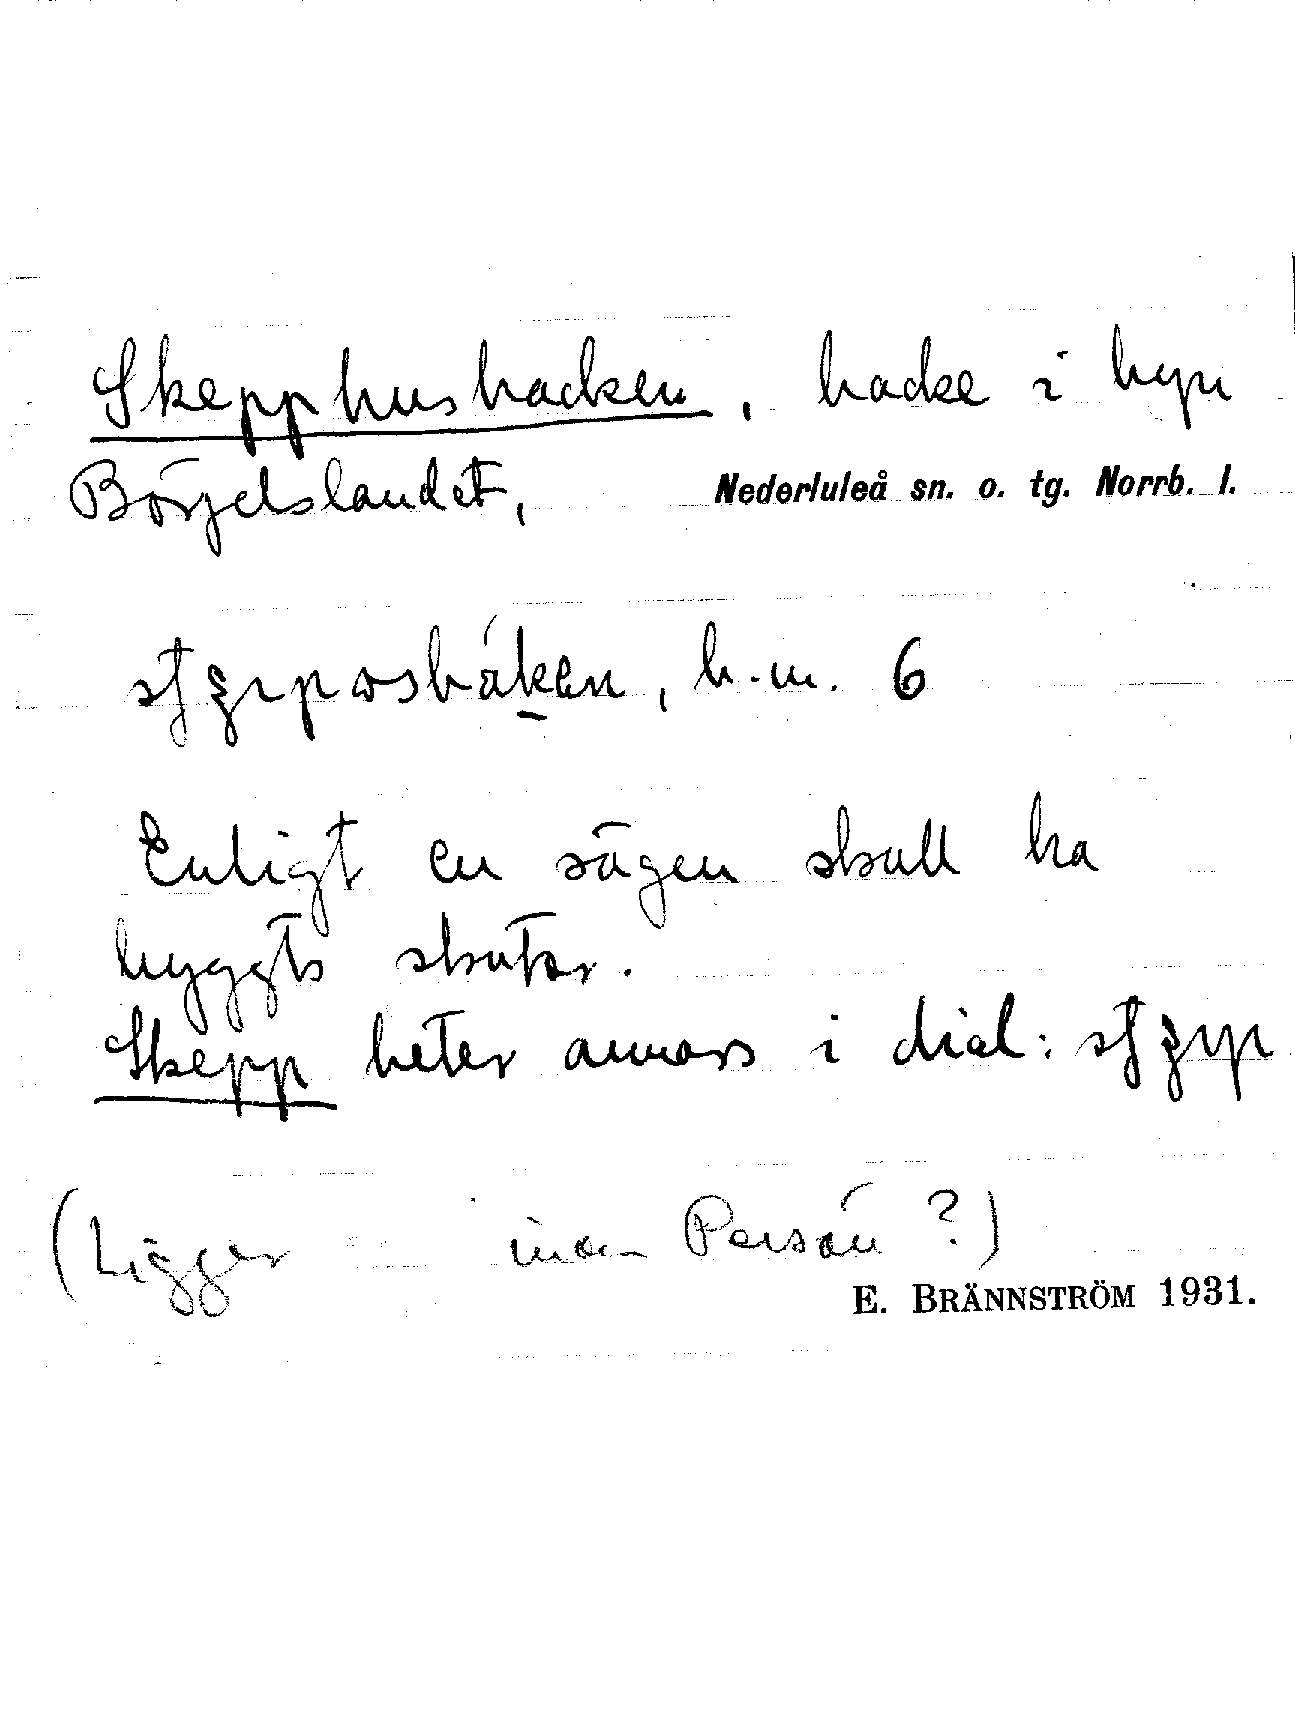 Skepphusbacken, backe i byn
Börjelslandet, Nederluleå sn. o. tg. Norrb. l.
b.m. 6
Enligt en sägen skall ha
byggts skutor.
Skepp heter annars i dial:
(Ligger inom Persön ?)
E. BRÄNNSTRÖM 1931.